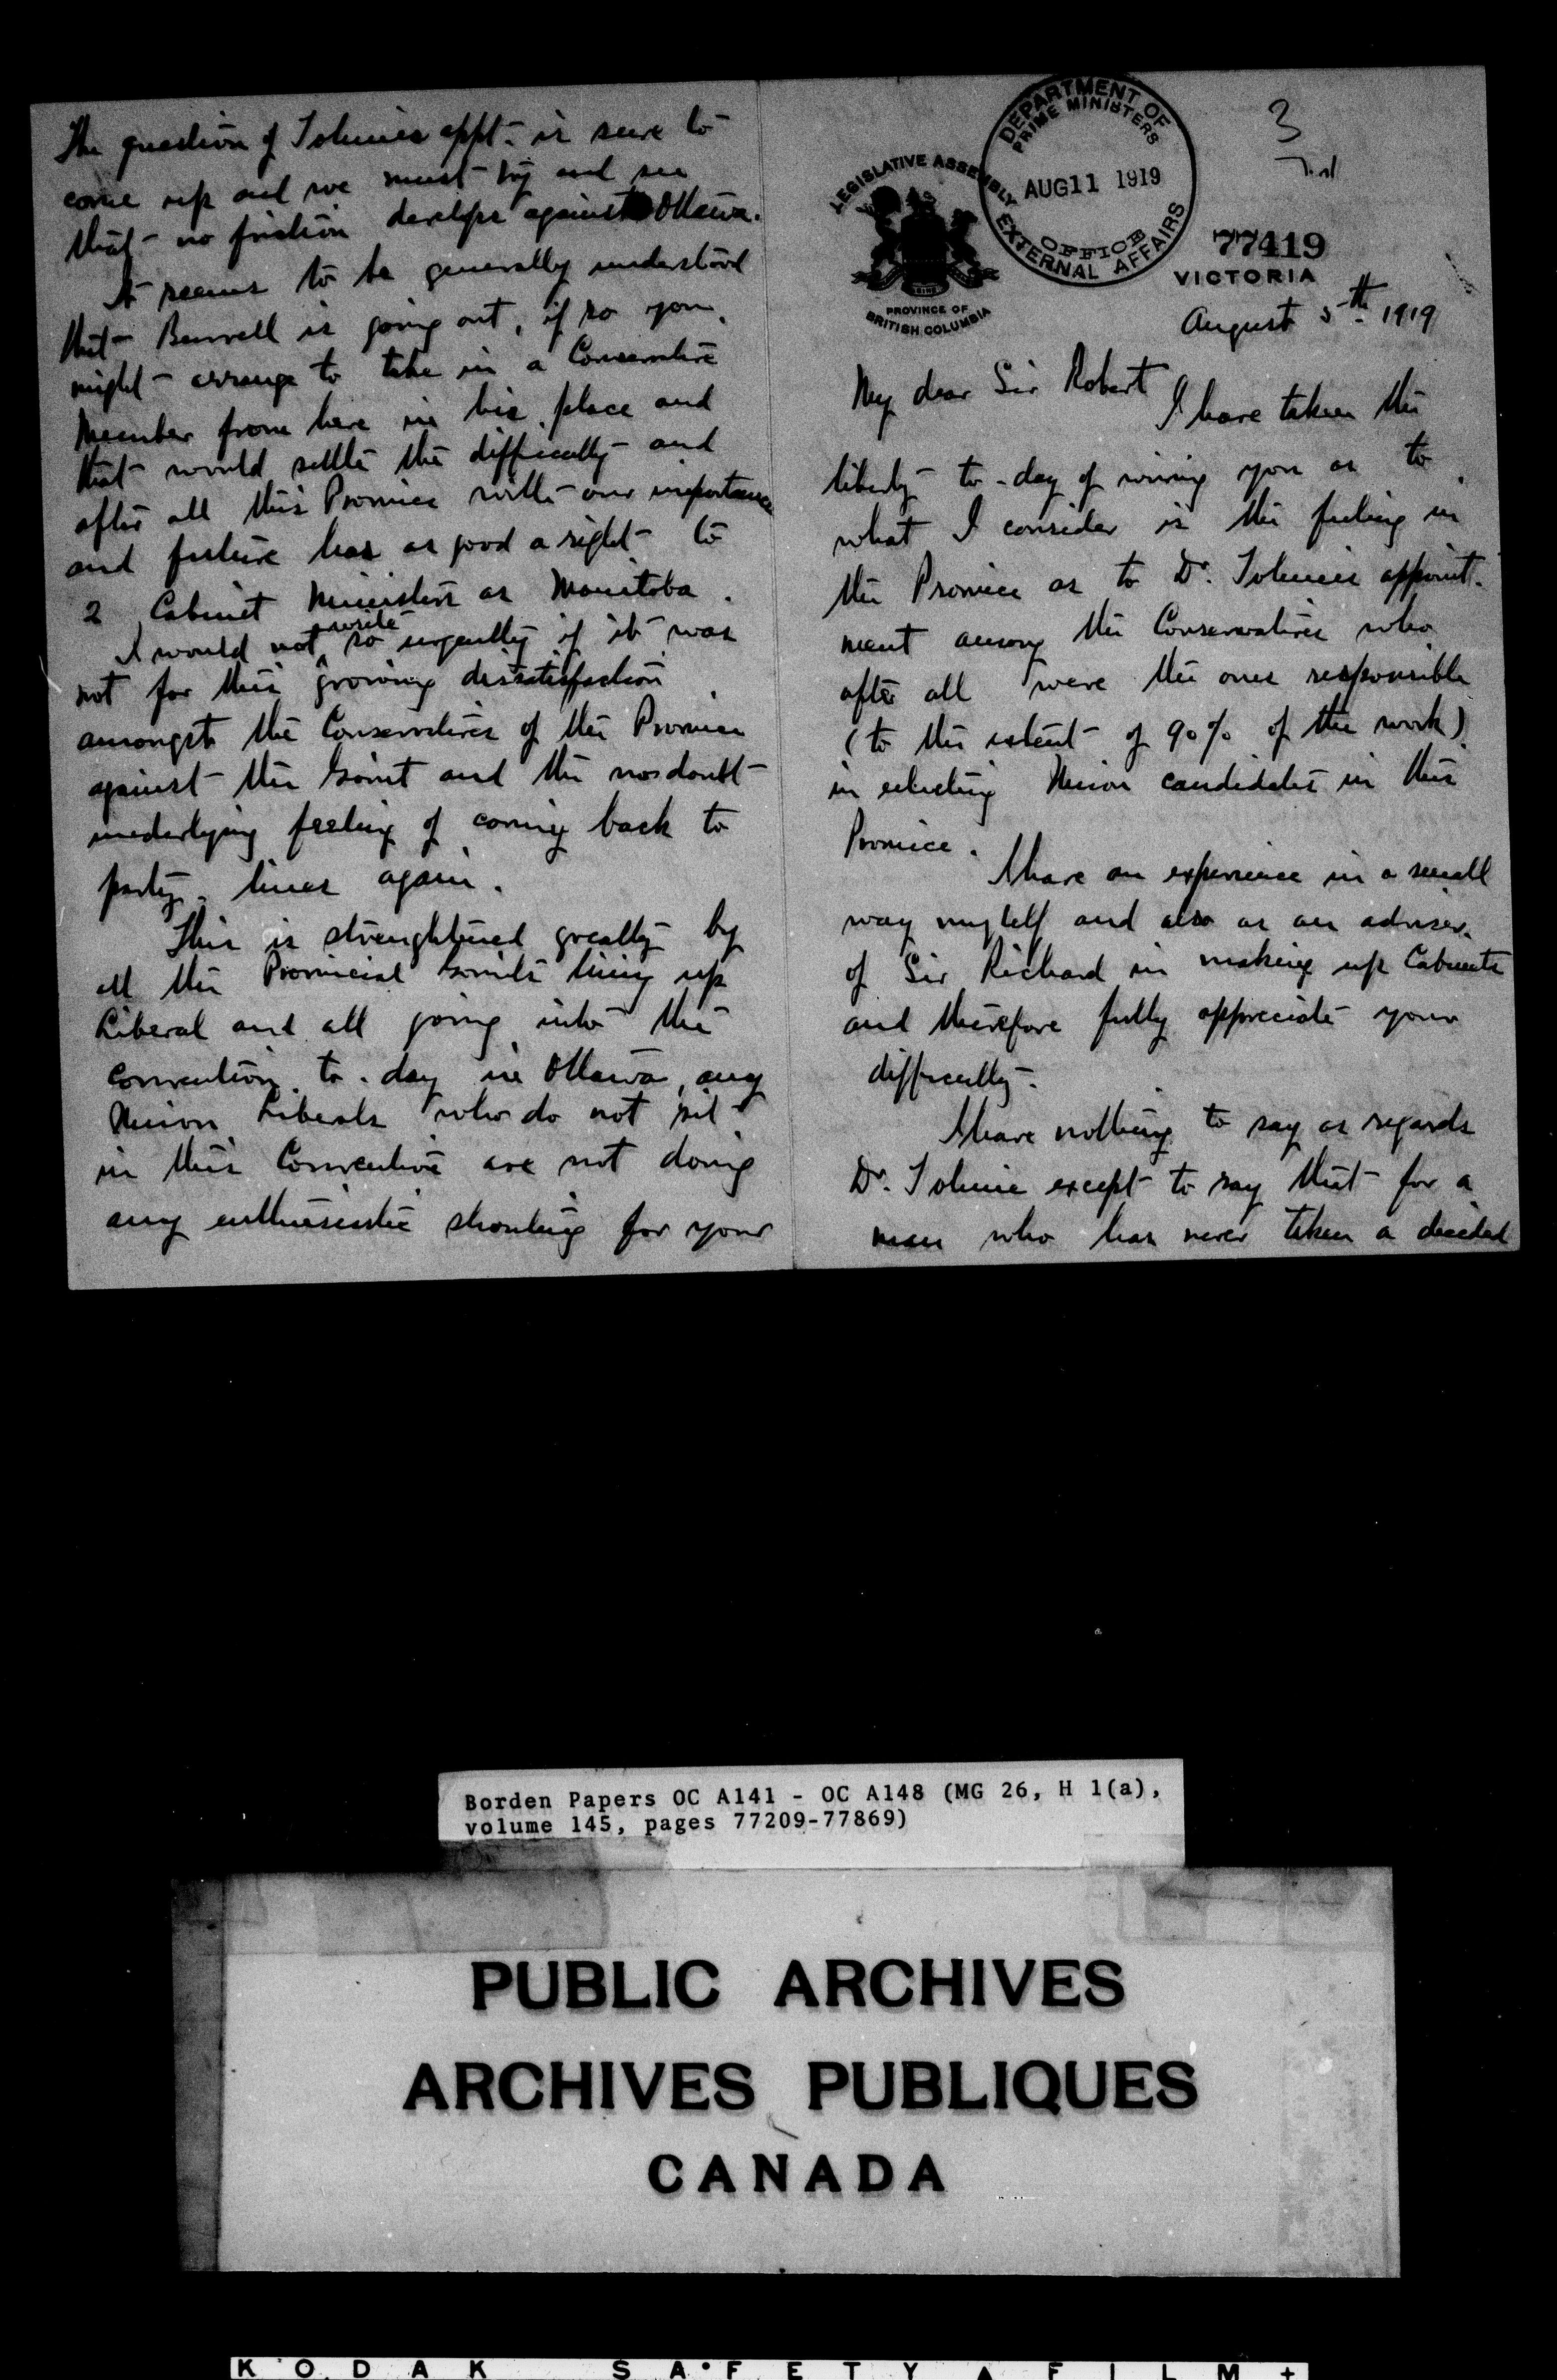 The question of Tolmies appt. is sure to
come up and we must try and see
that no friction develops against Ottawa.
It seems to be generally understood
that Burrell is going out, if so you
might arrange to take in a Conservative
Member from here in his place and
that would settle the difficulty and
after all this Province with our importance
and future has as good a right to
2 Cabinet Ministers as Manitoba.
write
I would not so urgently if it was
not for this growing dissatisfaction
amongst the Conservatives of this Province
against the Govnt and the no doubt
underlying feeling of coming back to
party lines again.
This is strenghtened greatly by
all the Provincial Govnts lining up
Liberal and all going into the
convention to-day in Ottawa, any
Union Liberals who do not sit
in this Convention are not doing
any enthusiastic shouting for your
DEPARTMENT OF
PRIME MINISTERS
AUG 11 1919
OFFICE
EXTERNAL AFFAIRS
3
LEGISLATIVE ASSEMBLY
PROVINCE OF
BRITISH COLUMBIA
77419
VICTORIA
August 5th 1919
My dear Sir Robert
I have taken the
liberty to-day of wiring you as to
what I consider is the feeling in
the Province as to Dr. Tolmies appoint-
ment among the Conservatives who
after all were the ones responsible
(to the extent of 90% of the work)
in electing Union candidates in this
Province.
I have an experience in a small
way myself and also as an adviser
of Sir Richard in making up Cabinets
and therefore fully appreciate your
difficulty.
I have nothing to say as regards
Dr. Tolmie except to say that for a
man who has never taken a decided
Borden Papers OC A141 - OC A148 (MG 26, H 1(a),
volume 145, pages 77209-77869)
PUBLIC ARCHIVES
ARCHIVES PUBLIQUES
CANADA
KODAK SAFETY FILM